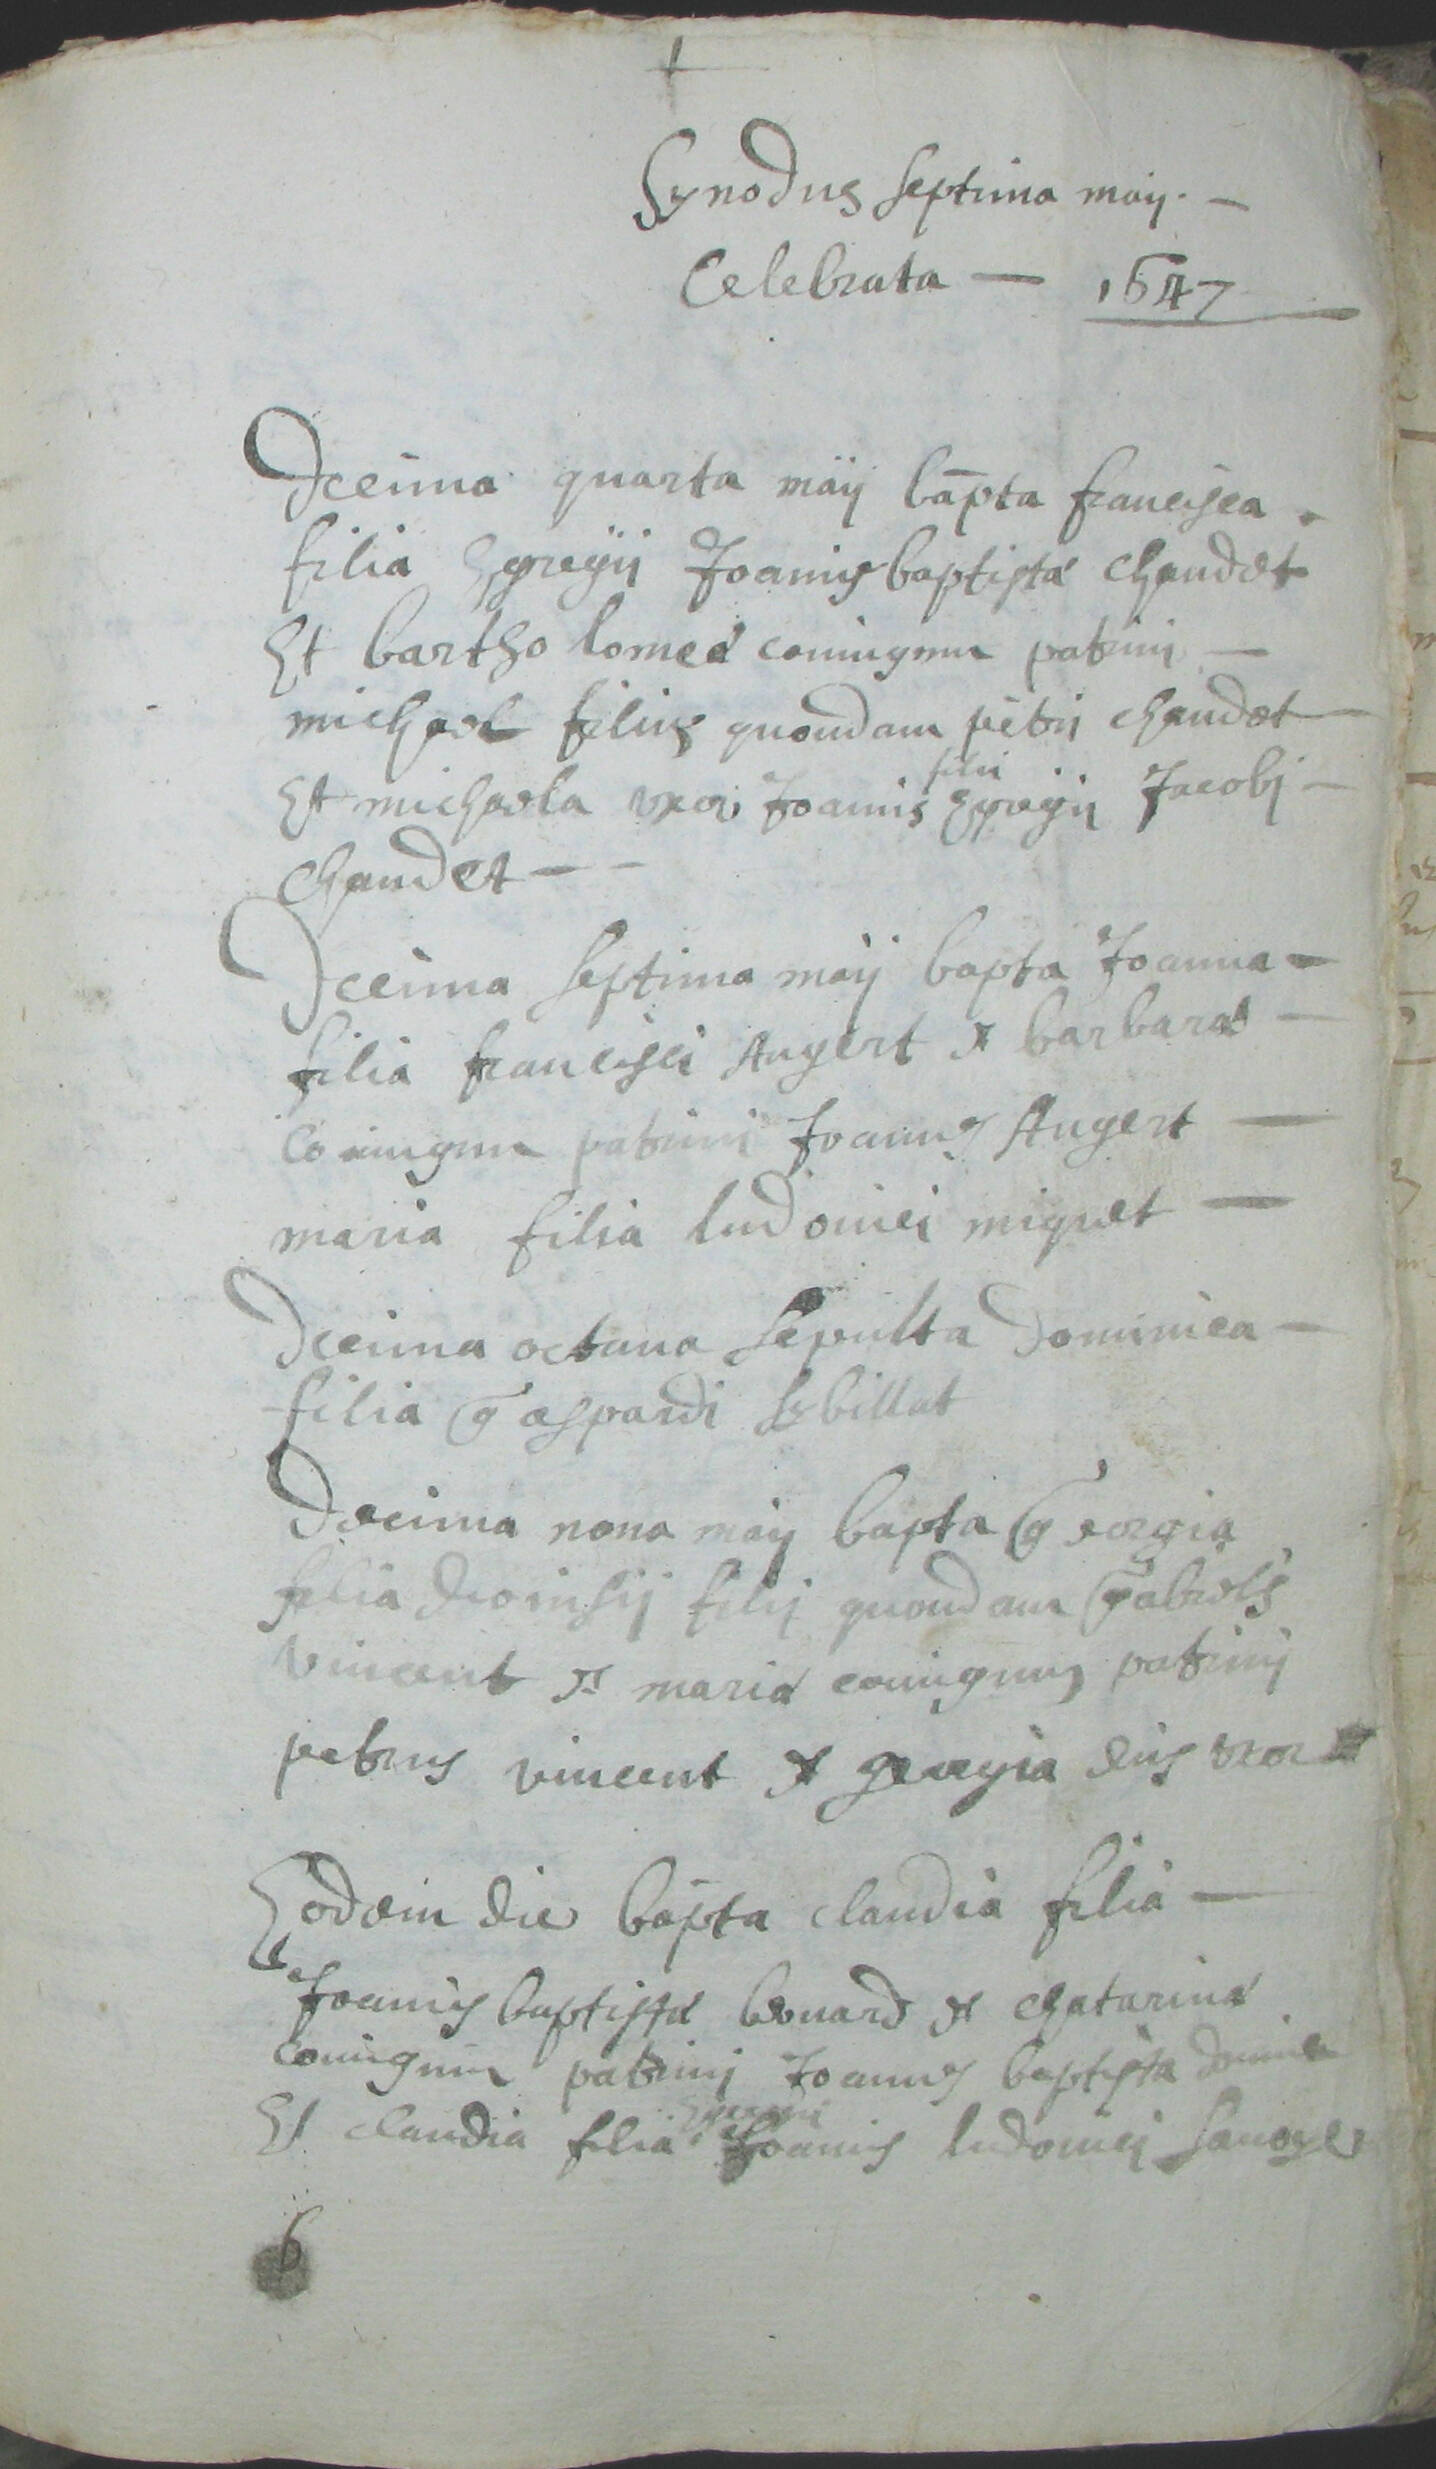 Synodus septima maij. —
Celebrata — 1647
Decima quarta maij bapta francisca
filia Egregii Joanis baptistæ chaudet
Et bartholomeæ coniugum patrini —
michael filius quondam petri chaudet
filii
Et michaela uxor Joanis Egregii Jacobi —
chaudet — —
Decima septima maij bapta Joanna —
filia francisci Augert et barbaræ —
coniugum patrini Joannes Augert —
maria filia ludovici miguet —
Decima octava sepulta dominica —
filia gaspardi sybillat
Decima nona maij bapta georgia
filia dionisij filij quondam gabrielis
vincent et mariæ coniugum patrinj
petrus vincent et georgia eius uxor
Eodem die bapta claudia filia —
Joanis baptistæ et chatarinæ
coniugum patrinj Joannes baptista
Et claudia filia Joanis ludovicj
6